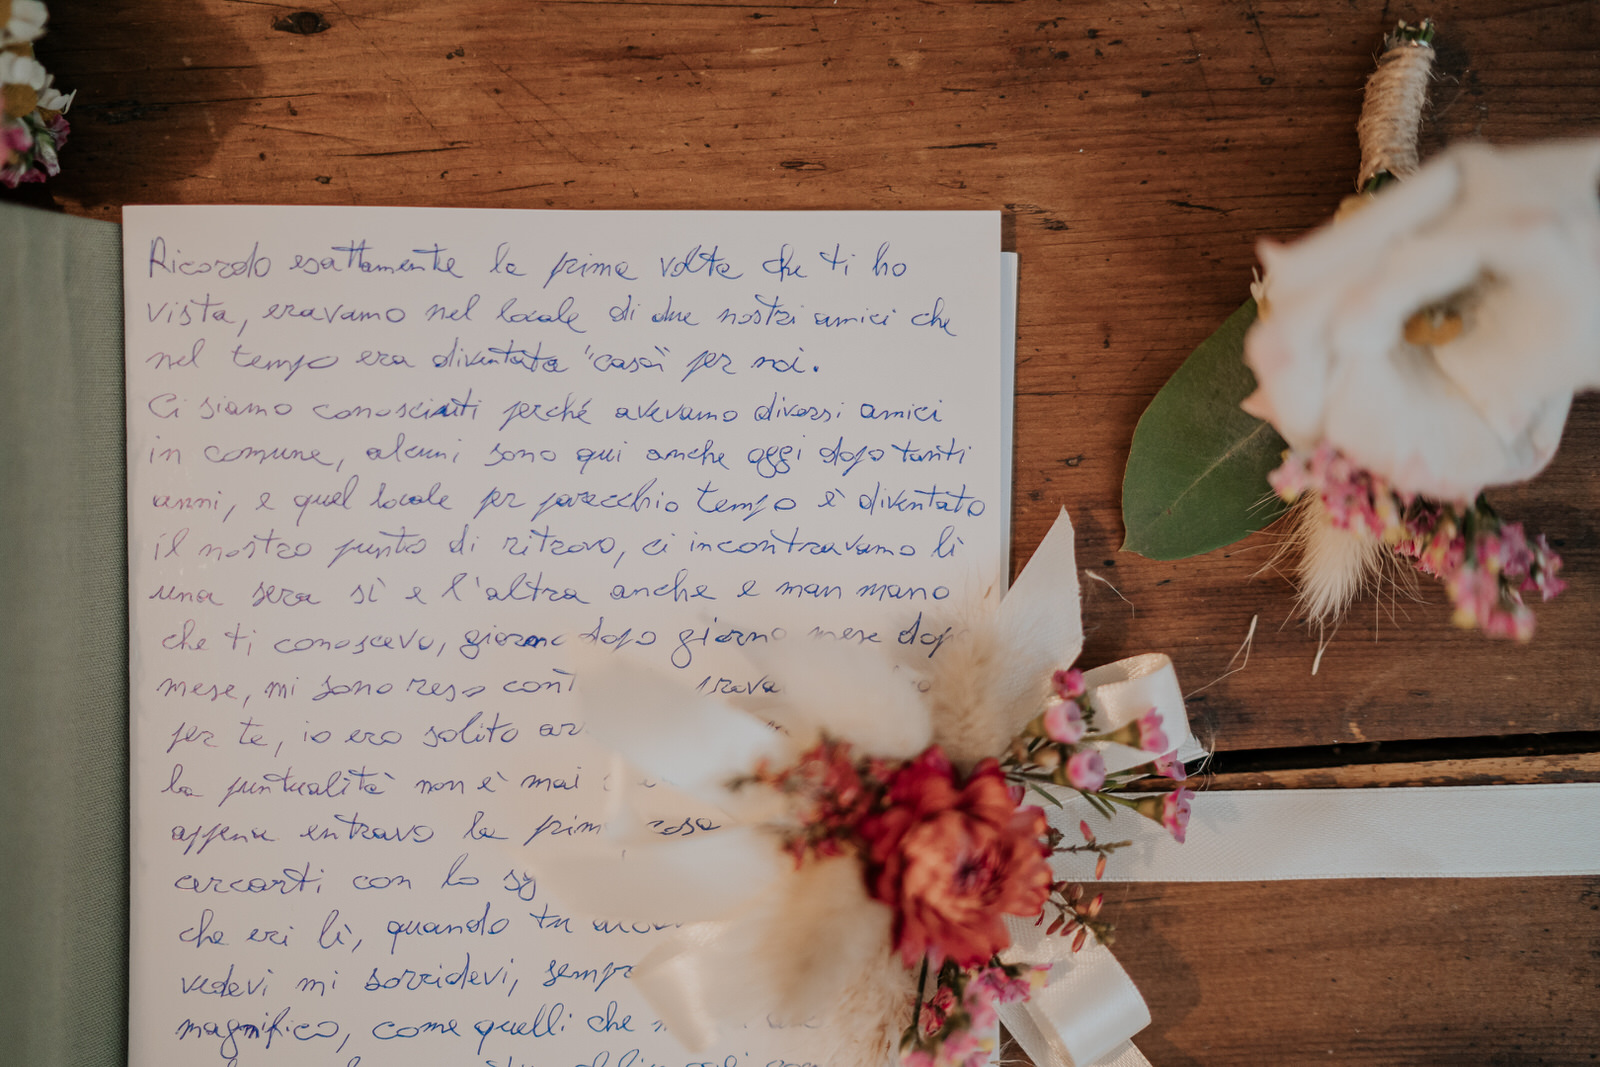 Ricordo esattamente la prima volta che ti ho
vista, eravamo nel locale di due nostri amici che
nel tempo era diventata "casa" per noi.
Ci siamo conosciuti perché avevamo diversi amici
in comune, alcuni sono qui anche oggi dopo tanti
anni, e quel locale per parecchio tempo è diventato
il nostro punto di ritrovo, ci incontravamo lì
una sera sì e l'altra anche e man mano
che ti conoscevo, giorno dopo giorno mese dop
mese, mi sono reso cont
per te, io ero solito ar
la puntualità non è mai
appena entravo la prim cosa
cercarti con lo sg
che eri lì, quando tu
vedevi mi sorridevi, sempr
magnifico, come quelli che